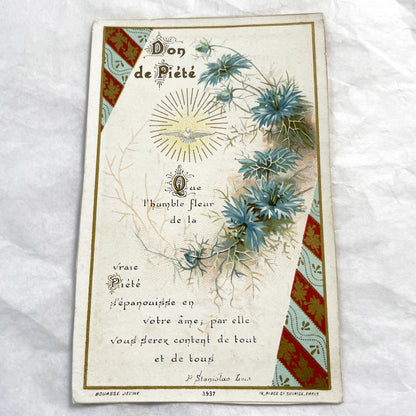 Don
de Piété
Que
l'humble fleur
de la
vraie
Piété
s'épanouisse en
votre âme; par elle
vous serez content de tout
et de tous
P. Stanislas
BOUASSE JEUNE
3937
PLACE ST SULPICE, PARIS